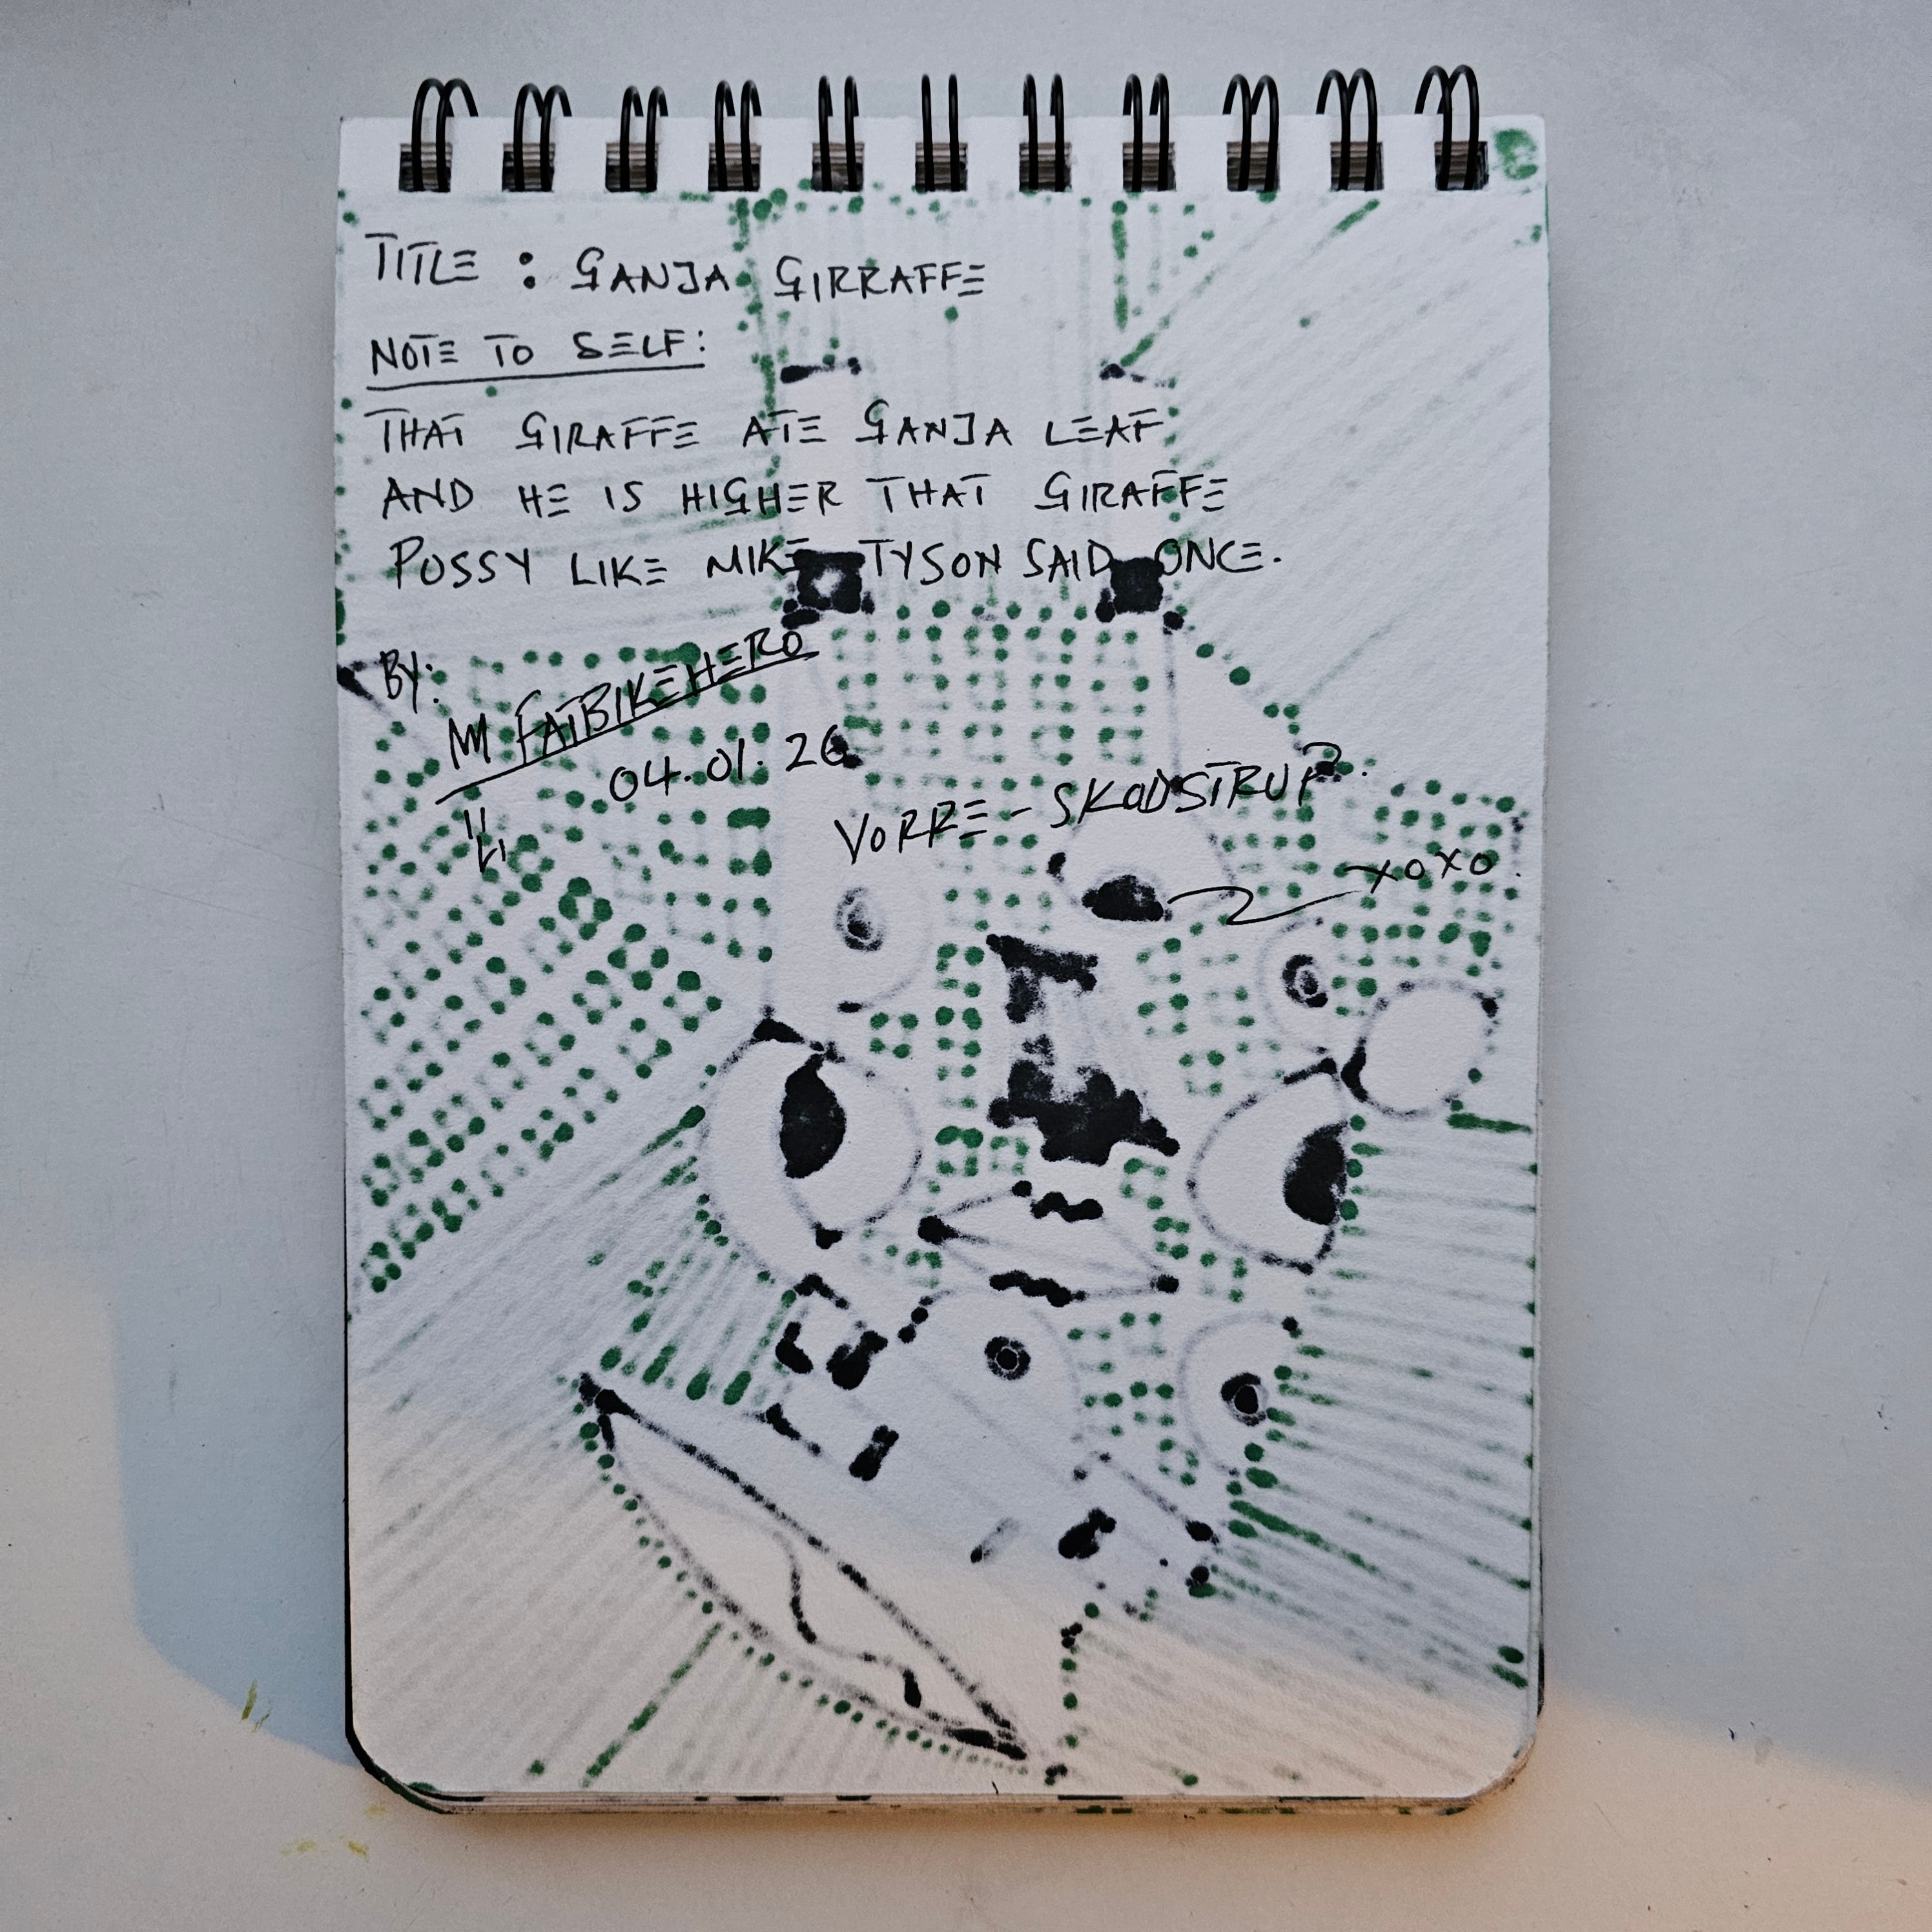 TITLE : GANJA GIRRAFFE
NOTE TO SELF:
THAT GIRAFFE ATE GANJA LEAF
AND HE IS HIGHER THAT GIRAFFE
PUSSY LIKE MIKE TYSON SAID ONCE.
BY:
M FATBIKEHERO
04.01.26
VORRE - SKODSTRUP.
XOXO.